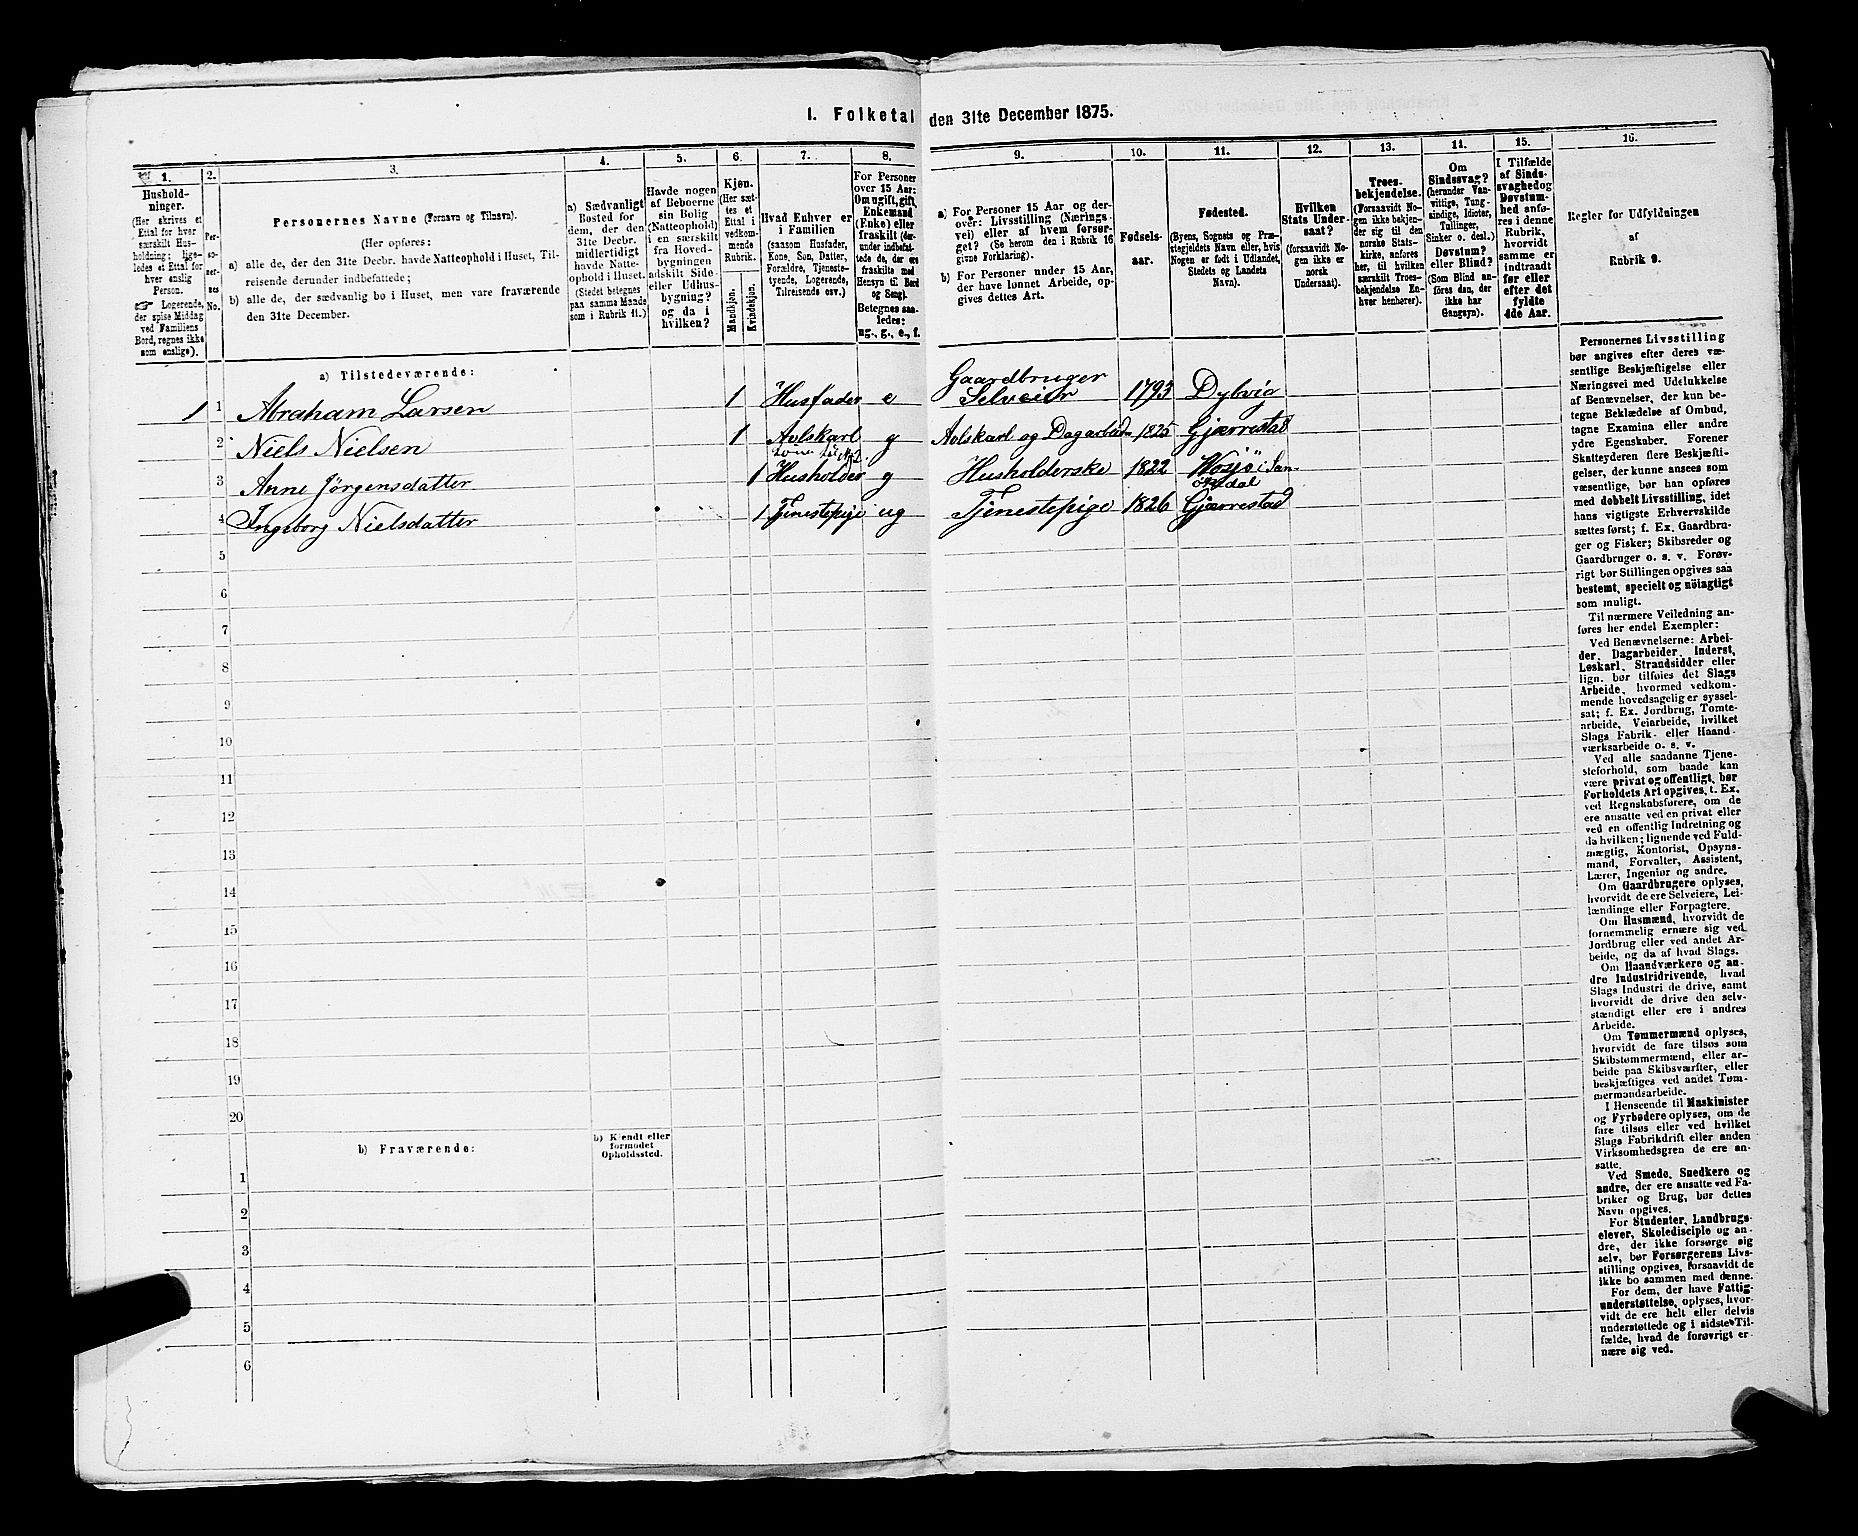 I. Folketal den 31te December 1875.
1. 2. 3. 4. 5. 6. 7. 8. 9. 10. 11. 12. 13. 14. 15. 16.
Husholdninger.
(Her skrives et
Ettal for hver
særskilt Husholdning; ligeledes et Ettal for
hver enslig
Person.
☞ Logerende,
der spise Middag
ved Familiens
Bord, regnes ikke
som enslige).
Personernes No.
Personernes Navne (Fornavn og Tilnavn).
(Her opføres:
a) alle de, der den 31te Decbr. havde Natteophold i Huset, Tilreisende derunder indbefattede;
b) alle de, der sædvanlig bo i Huset, men vare fraværende
den 31te December.
a) Sædvanligt
Bosted for
dem, der den
31te Decbr.
midlertidigt
havde Natteophold i Huset.
(Stedet betegnes
paa samme Maade
som i Rubrik 11.)
Havde nogen
af Beboerne
sin Bolig
(Natteophold)
i en særskilt
fra Hovedbygningen
adskilt Side
eller Udhusbygning?
og da i
hvilken?
Kjøn.
(Her sættes et
Ettal i
vedkommende
Rubrik.
Mandkjøn.
Kvindekjøn.
Hvad Enhver er
i Familien
(saasom Husfader,
Kone, Søn, Datter,
Forældre, Tjenestetyende, Logerende,
Tilreisende osv.)
For Personer
over 15 Aar:
Om ugift, gift,
Enkemand
(Enke) eller
fraskilt (derunder indbefattede de, der ere
fraskilte med
Hensyn til Bord
og Seng).
Betegnes saaledes:
ug., g., e., f.
a) For Personer 15 Aar og derover: Livsstilling (Næringsvei) eller af hvem forsørget? (Se herom den i Rubrik 16
givne Forklaring).
b) For Personer under 15 Aar,
der have lønnet Arbeide, opgives dettes Art.
Fødselsaar.
Fødested.
(Byens, Sognets og Præstegjeldets Navn eller, hvis
Nogen er født i Udlandet,
Stedets og Landets
Navn).
Hvilken
Stats Undersaat?
(forsaavidt Nogen ikke er
norsk
Undersaat).
Troesbekjendelse.
(Forsaavidt Nogen ikke bekjender sig til den
norske Statskirke, anføres
her, til hvilken
særskilt Troesbekjendelse Enhver henhører).
Om
Sindssvag?
(herunder Vanvittige, Tungsindige, Idioter,
Tullinger,
Sinker o. desl.)
Døvstum?
eller Blind?
(Som Blind anføres den, der
ikke har
Gangsyn).
I Tilfælde
af Sindssvaghed og
Døvstumhed anføres i denne
Rubrik,
hvorvidt
samme er
indtraadt
før eller
efter det
fyldte
4de Aar.
Regler for Udfyldningen
af
Rubrik 9.
a) Tilstedeværende:
1 1 Abraham Larsen 1 Husfader e Gaardbruger Selveier 1793 Dybvig
2 Niels Nielsen 1 Avlskarl g Avlskarl og Dagarbeider 1825 Gjærrestad
3 Anne Jörgensdatter 1 Husholder g Husholderske 1822 i Sannødal
4 Ingeborg Nielsdatter 1 Tjenestepige ug Tjenestepige 1826 Gjærrestad
5
6
7
8
9
10
11
12
13
14
15
16
17
18
19
20
b) Fraværende:
b) Kjendt eller
formodet
Opholdssted.
1
2
3
4
5
6
Personernes Livsstilling
bør angives efter deres væsentlige Beskjæftigelse eller
Næringsvei med Udelukkelse
af Benævnelser, der kun betegne Beklædelse af Ombud,
tagne Examina eller andre
ydre Egenskaber. Forener
Skatteyderen flere Beskjæftigelser, der kunne ansees som
væsentlige, bør han opføres
med dobbelt Livsstilling, idet
hans vigtigste Erhvervskilde
sættes først; f. Ex. Gaardbruger og Fisker; Skibsreder og
Gaardbruger o. s. v. Forøvrigt bør Stillingen opgives saa
bestemt, specielt og nöiagtigt
som muligt.
Til nærmere Veiledning anføres her endel Exempler:
Ved Benævnelserne: Arbeider, Dagarbeider, Inderst,
Løskarl, Strandsidder eller
lign. bør tilføies det Slags
Arbeide, hvormed vedkommende hovedsagelig er sysselsat; f. Ex. Jordbrug, Tomtearbeide, Veiarbeide, hvilket
Slags Fabrik- eller Haandværksarbeide o. s. v.
Ved alle saadanne Tjenesteforhold, som baade kan
være privat og offentligt, bør
Forholdets Art opgives, t. Ex.
ved Regnskabsførere, om de
ere ansatte ved en privat eller
ved en offentlig Indretning og
da hvilken; lignende ved Fuldmægtig, Kontorist, Opsynsmand, Forvalter, Assistent,
Lærer, Ingeniør og andre.
Om Gaardbrugere oplyses,
hvorvidt de ere Selveiere, Leilændinge eller Forpagtere.
Om Husmænd, hvorvidt de
fornemmelig ernære sig ved
Jordbrug eller ved andet Arbeide, og da af hvad Slags.
Om Haandværkere og andre Industridrivende, hvad
Slags Industri de drive, samt
hvorvidt de drive den selvstændigt eller ere i andres
Arbeide.
Om Tømmermænd oplyses,
hvorvidt de fare tilsøs som
Skibstømmermænd, eller arbeide paa Skibsværfter, eller
beskjæftiges ved andet Tømmermandsarbeide.
I Henseende til Maskinister
og Fyrbødere oplyses, om de
fare tilsøs eller ved hvilket
Slags Fabrikdrift eller anden
Virksomhedsgren de ere ansatte.
Ved Smede, Snedkere og
andre, der ere ansatte ved Fabriker og Brug, bør dettes
Navn opgives.
For Studenter, Landbrugselever, Skoledisciple og andre, der ikke forsørge sig
selv, bør Forsørgerens Livsstilling opgives, forsaavidt de
ikke bo sammen med denne.
For dem, der have Fattigunderstøttelse, oplyses, hvorvidt de ere helt eller delvis
understøttede og i sidste Tilfælde, hvad de forøvrigt ernære sig ved.